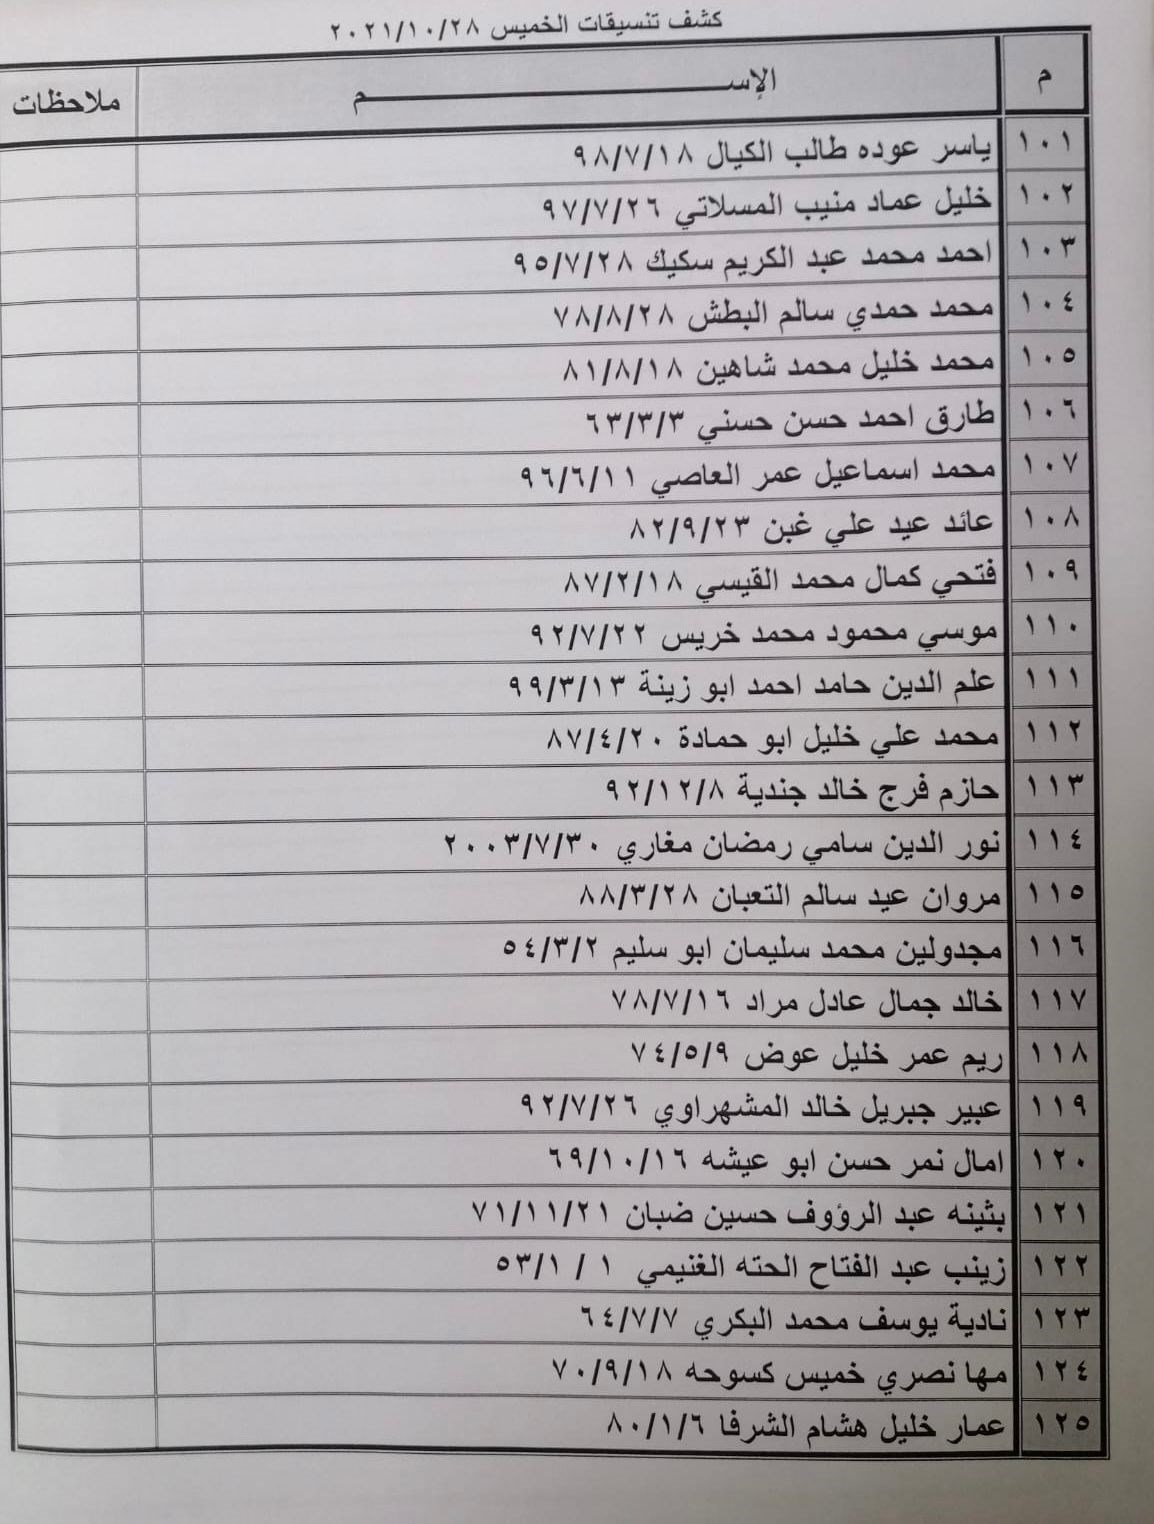 كشف تنسيقات الخميس ٢٠٢١/١٠/٢٨
م الإســـــم ملاحظات
١٠١ ياسر عوده طالب الكيال ٩٨/٧/١٨
١٠٢ خليل عماد منيب المسلاتي ٩٧/٧/٢٦
١٠٣ احمد محمد عبد الكريم سكيك ٩٥/٧/٢٨
١٠٤ محمد حمدي سالم البطش ٧٨/٨/٢٨
١٠٥ محمد خليل محمد شاهين ٨١/٨/١٨
١٠٦ طارق احمد حسن حسني ٦٣/٣/٣
١٠٧ محمد اسماعيل عمر العاصي ٩٦/٦/١١
١٠٨ عائد عيد علي غبن ٨٢/٩/٢٣
١٠٩ فتحي كمال محمد القيسي ٨٧/٢/١٨
١١٠ موسي محمود محمد خريس ٩٢/٧/٢٢
١١١ علم الدين حامد احمد ابو زينة ٩٩/٣/١٣
١١٢ محمد علي خليل ابو حمادة ٨٧/٤/٢٠
١١٣ حازم فرج خالد جندية ٩٢/١٢/٨
١١٤ نور الدين سامي رمضان مغاري ٢٠٠٣/٧/٣٠
١١٥ مروان عيد سالم التعبان ٨٨/٣/٢٨
١١٦ مجدولين محمد سليمان ابو سليم ٥٤/٣/٢
١١٧ خالد جمال عادل مراد ٧٨/٧/١٦
١١٨ ريم عمر خليل عوض ٧٤/٥/٩
١١٩ عبير جبريل خالد المشهراوي ٩٢/٧/٢٦
١٢٠ امال نمر حسن ابو عيشه ٦٩/١٠/١٦
١٢١ بثينه عبد الرؤوف حسين ضبان ٧١/١١/٢١
١٢٢ زينب عبد الفتاح الحته الغنيمي ٥٣/١/ ١
١٢٣ نادية يوسف محمد البكري ٦٤/٧/٧
١٢٤ مها نصري خميس كسوحه ٧٠/٩/١٨
١٢٥ عمار خليل هشام الشرفا ٨٠/١/٦